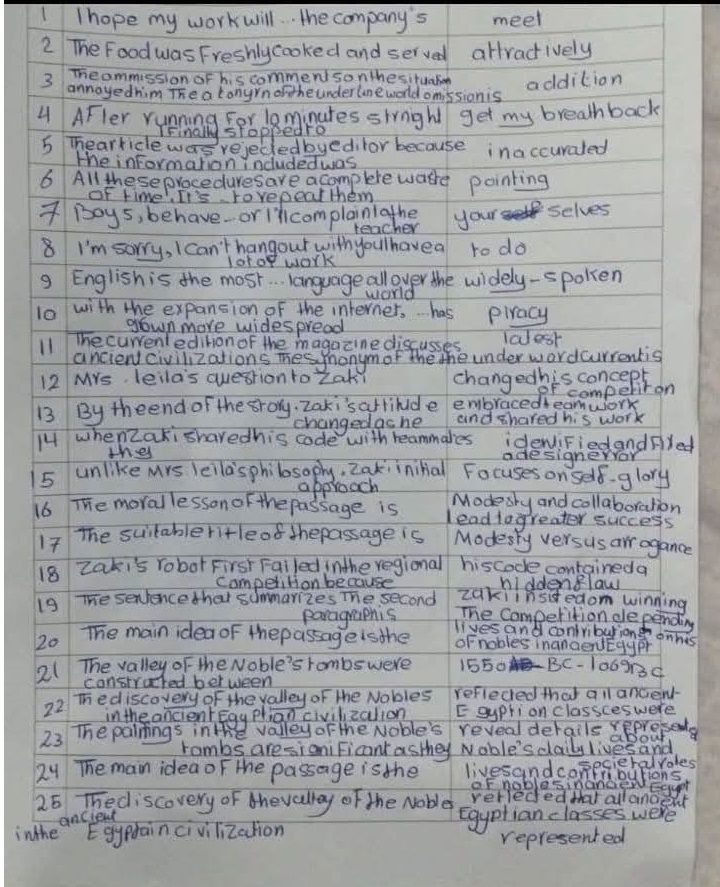 1 I hope my work will ... the company's meet
2 The Food was Freshly cooked and served attractively
3 The ommission of his comments on the situation addition
annoyed him The atonyrn of the underline world omission is
4 AFler running For 10 minutes strnight get my breath back
I Finally stopped to
5 The article was rejected by editor because inaccurated
the information included was
6 All these procedures are a complete waste pointing
of time. It's .. to repeat them
7 Boys, behave... or I'll complain to the your selves
teacher
8 I'm sorry, I can't hang out with you I have a to do
lot of work
9 English is the most ... language all over the widely-spoken
world
10 with the expansion of the internet, ... has piracy
grown more widespread
11 The current edition of the magazine discusses latest
ancient civilizations The synonym of the the under word current is
12 Mrs. leila's question to Zaki changed his concept
of competiton
13 By the end of the story. Zaki's attitude embraced team work
changed as he and shared his work
14 when Zaki shared his code with teammates identified and fixed
they a design error
15 unlike Mrs leila's philosophy, Zaki initial Focuses on self-glory
approach
16 The moral lesson of the passage is Modesty and collaboration
lead to greater success
17 The suitable title of the passage is Modesty versus arrogance
18 Zaki's robot First Failed in the regional his code contained a
Competition because hidden flaw
19 The sentence that summarizes The second zaki insisted on winning
paragraph is The Competition depending
on his
20 The main idea of the passage is the lives and contributions
of nobles in ancient Egypt
21 The valley of the Noble's tombs were 1550 BC - 1069 BC
constructed between
22 The discovery of the valley of the Nobles reflected that all ancient
in the ancient Egyptian civilization Egyption classces were
represented
23 The paintings in the valley of the Noble's reveal details about
tombs are significant as they Noble's daily lives and
societal roles
24 The main idea of the passage is the lives and contributions
of nobles in ancient Egypt
25 The discovery of the valley of the Noble reflected that all ancient
in the ancient Egyptain civilization Egyptian classes were
represented